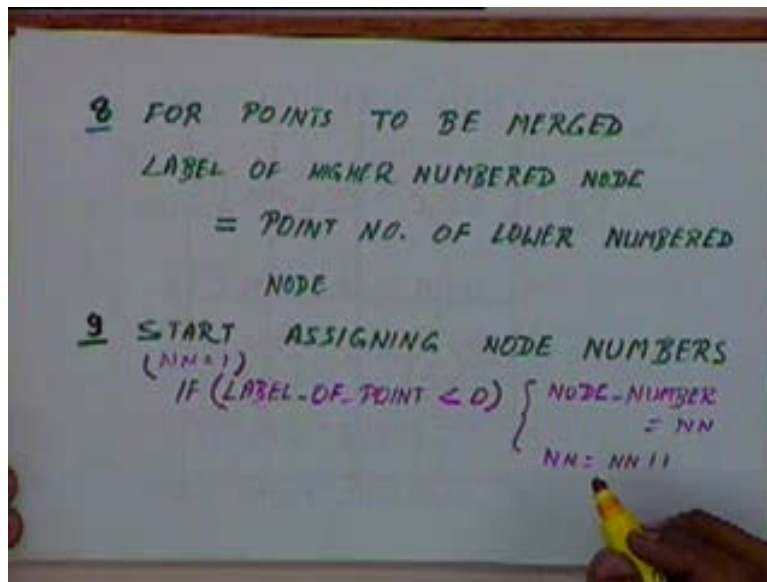 8 FOR POINTS TO BE MERGED
LABEL OF HIGHER NUMBERED NODE
= POINT NO. OF LOWER NUMBERED
NODE
9 START ASSIGNING NODE NUMBERS
(NN=1)
IF (LABEL-OF-POINT < 0) { NODE-NUMBER
= NN
NN = NN+1